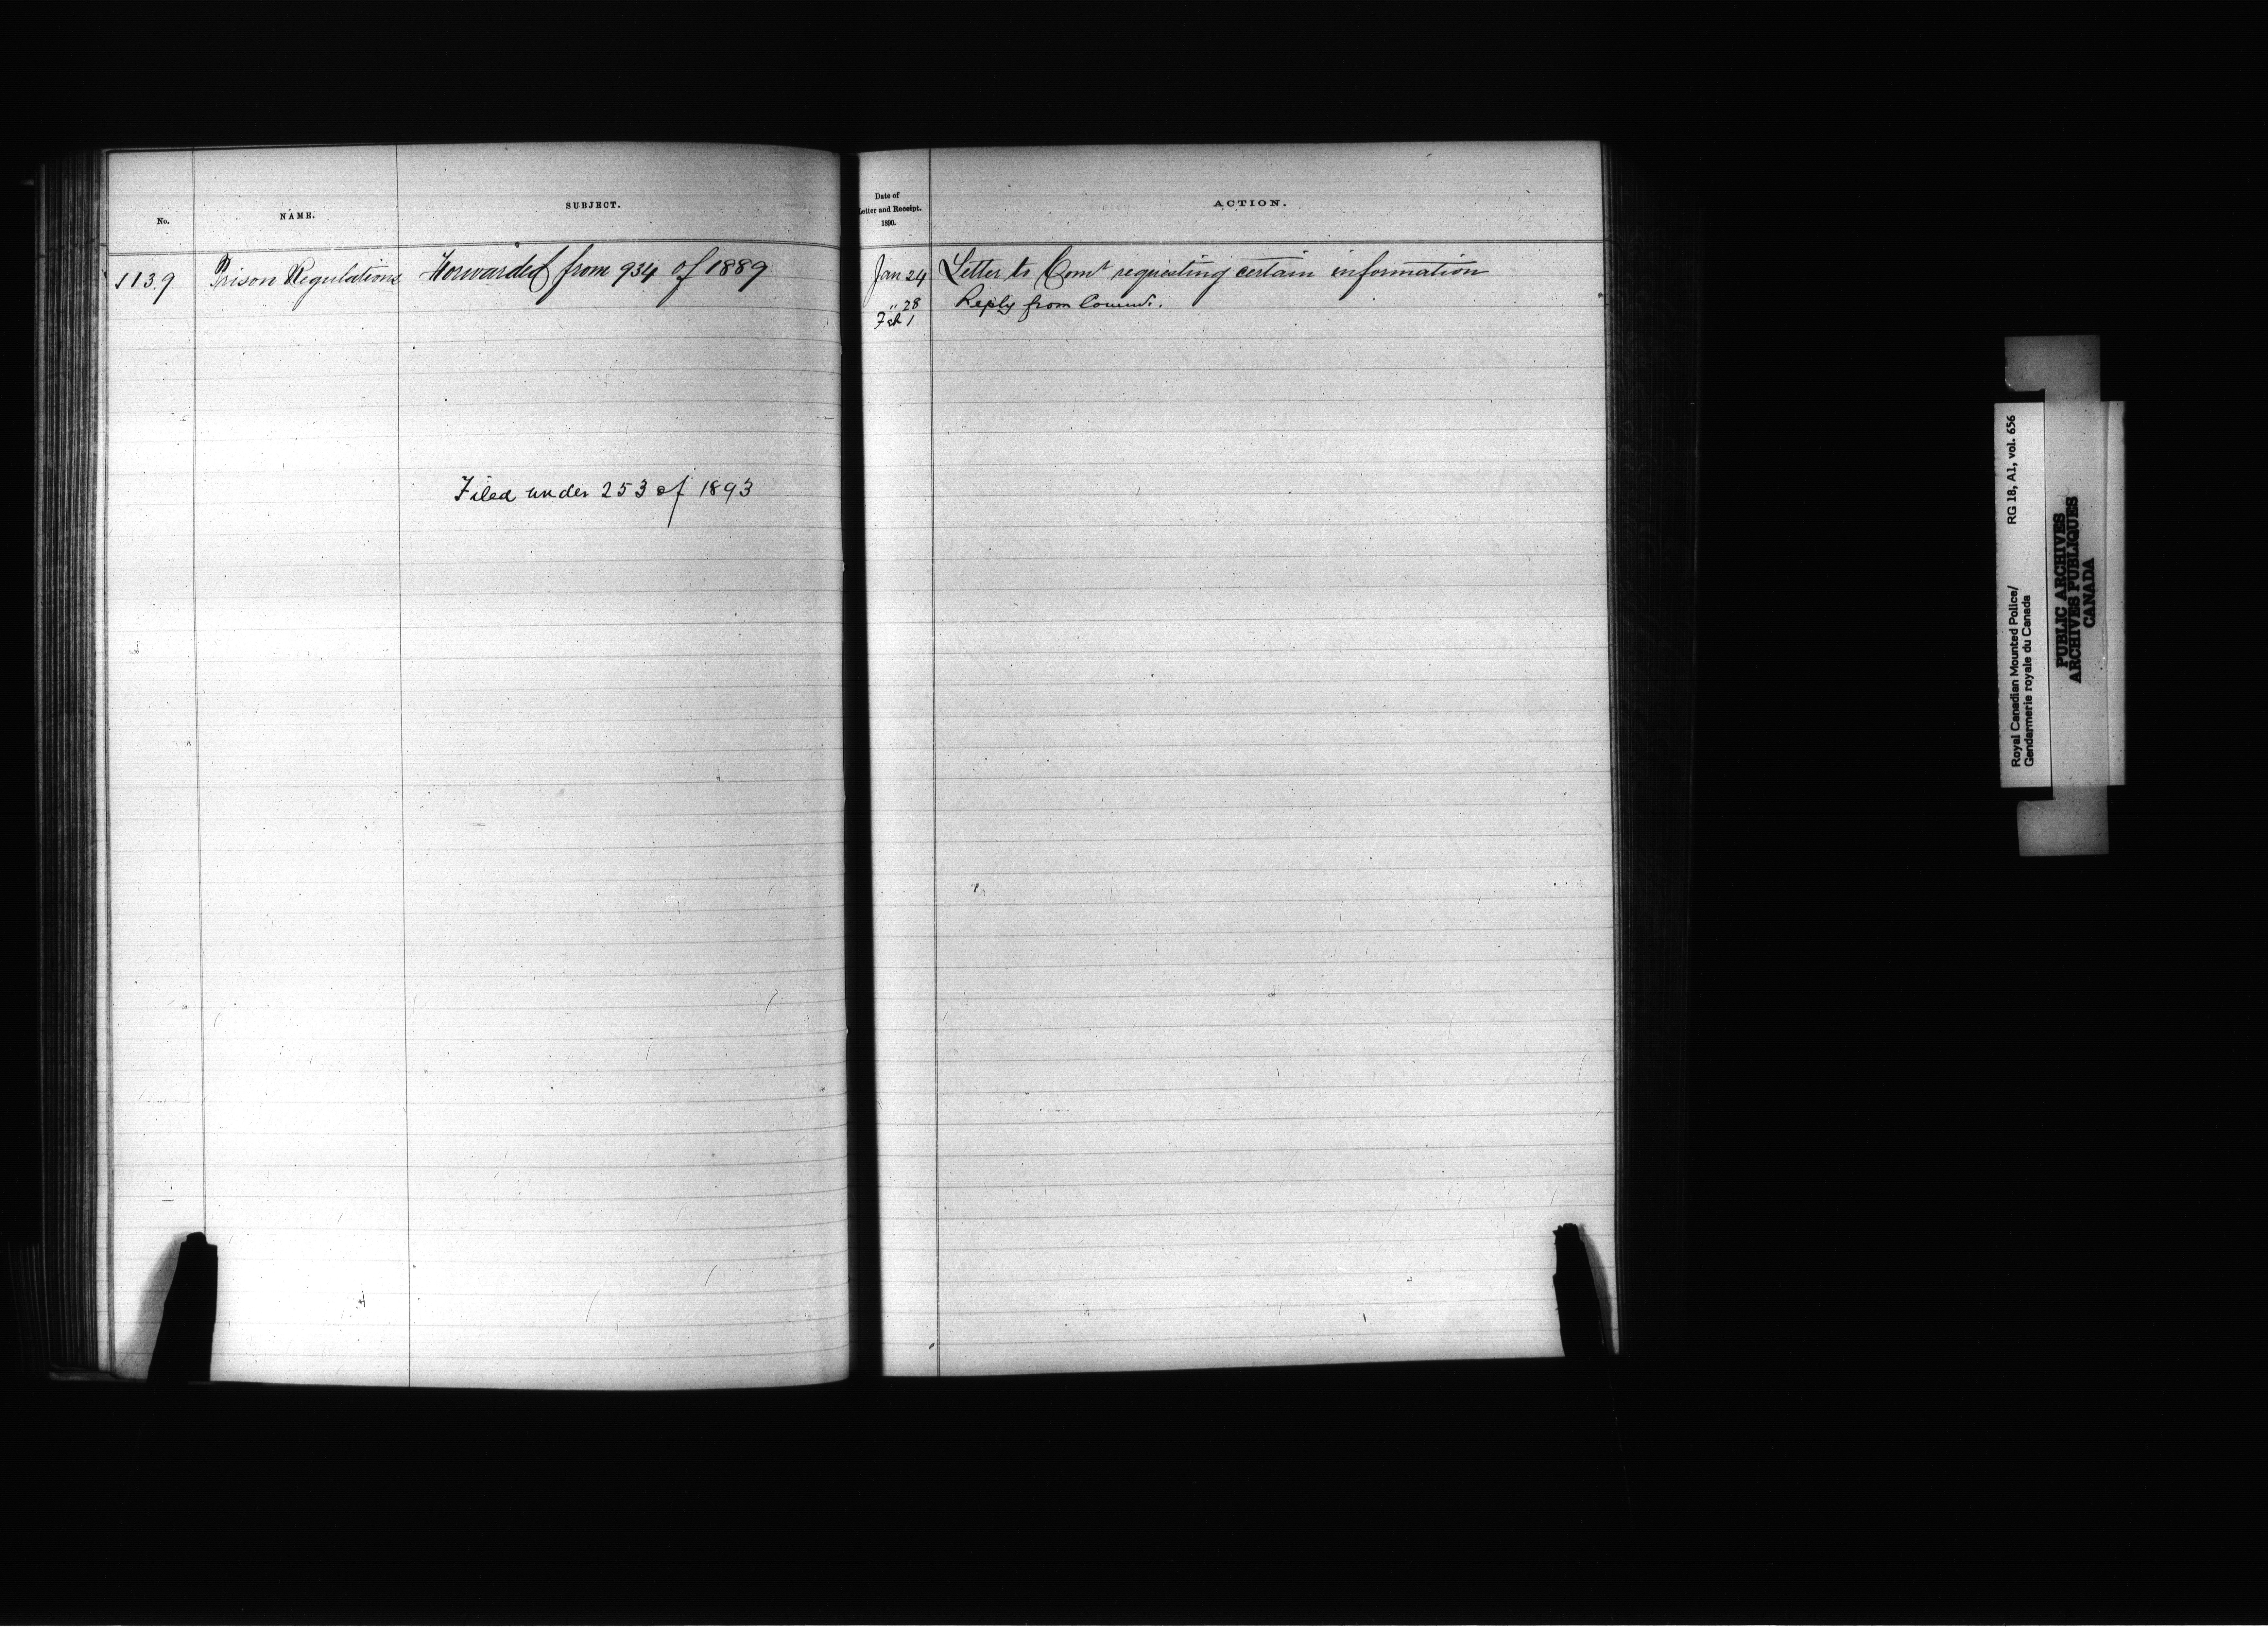 No.
NAME.
SUBJECT.
Date of
Letter and Receipt.
1890.
ACTION.
1139
Prison Regulations
Forwarded from 934 of 1889
Jan 24
Letter to Comr requesting certain information
" 28
Reply from Commr.
Feb 1
Filed under 253 of 1893
Royal Canadian Mounted Police/
Gendarmerie royale du Canada
RG 18, A1, vol. 656
PUBLIC ARCHIVES
ARCHIVES PUBLIQUES
CANADA